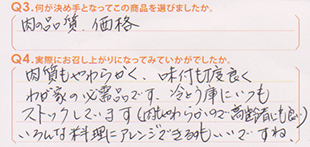 Q3.何が決め手となってこの商品を選びましたか。
肉の品質、価格
Q4.実際にお召し上がりになってみていかがでしたか。
肉質もやわらかく、味付も程良く
わが家の必需品です。冷とう庫にいつも
ストックしています(肉もやわらかいので高齢者にも良い)
いろんな料理にアレンジできるもいいですね。